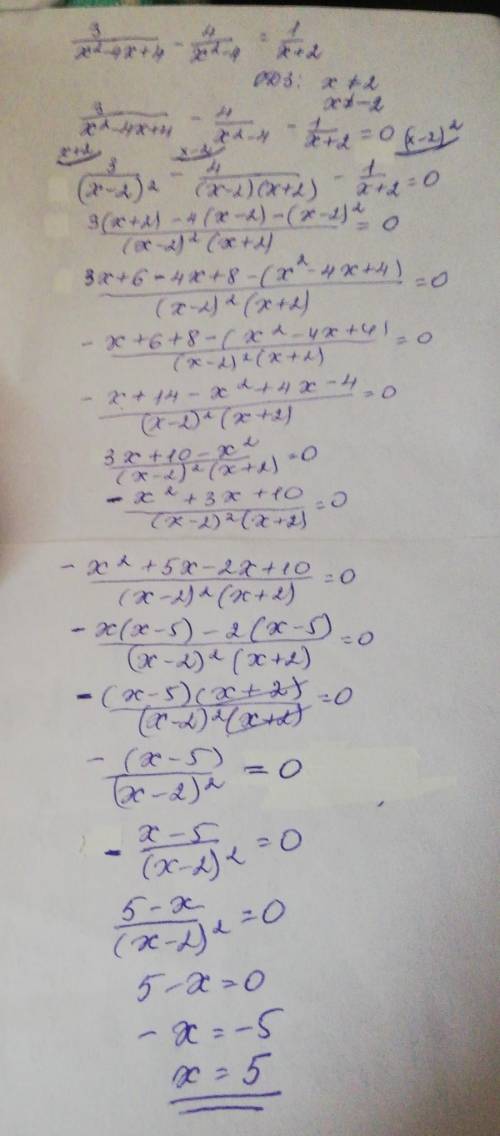 3/(x²-4x+4) - 4/(x²-4) = 1/(x+2)
ОДЗ: x ≠ 2
x ≠ -2
3/(x²-4x+4) - 4/(x²-4) - 1/(x+2) = 0
x+2 x-2 (x-2)²
3/(x-2)² - 4/((x-2)(x+2)) - 1/(x+2) = 0
(3(x+2) - 4(x-2) - (x-2)²)/((x-2)²(x+2)) = 0
(3x+6-4x+8-(x²-4x+4))/((x-2)²(x+2)) = 0
(-x+6+8-(x²-4x+4))/((x-2)²(x+2)) = 0
(-x+14-x²+4x-4)/((x-2)²(x+2)) = 0
(3x+10-x²)/((x-2)²(x+2)) = 0
(-x²+3x+10)/((x-2)²(x+2)) = 0
(-x²+5x-2x+10)/((x-2)²(x+2)) = 0
(-x(x-5)-2(x-5))/((x-2)²(x+2)) = 0
-((x-5)(x+2))/((x-2)²(x+2)) = 0
-(x-5)/(x-2)² = 0
- (x-5)/(x-2)² = 0
(5-x)/(x-2)² = 0
5-x=0
-x=-5
x=5